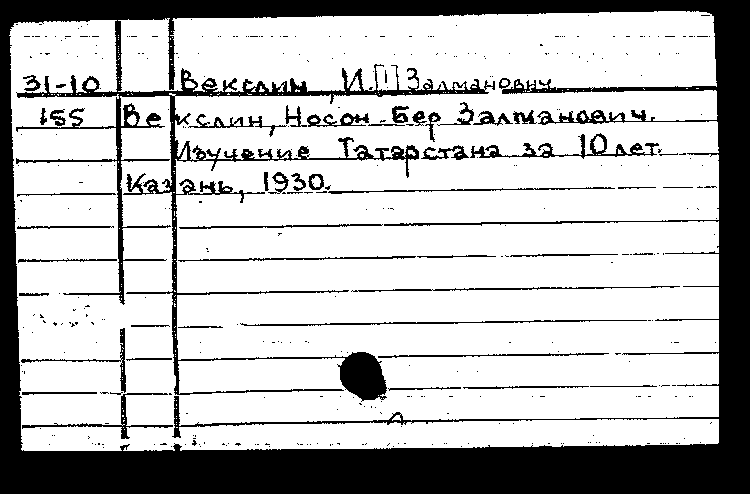 31-10 Векслин, И.[!] Залманович.
155 Векслин, Носон-Бер Залманович.
Изучение Татарстана за 10 лет.
Казань, 1930.